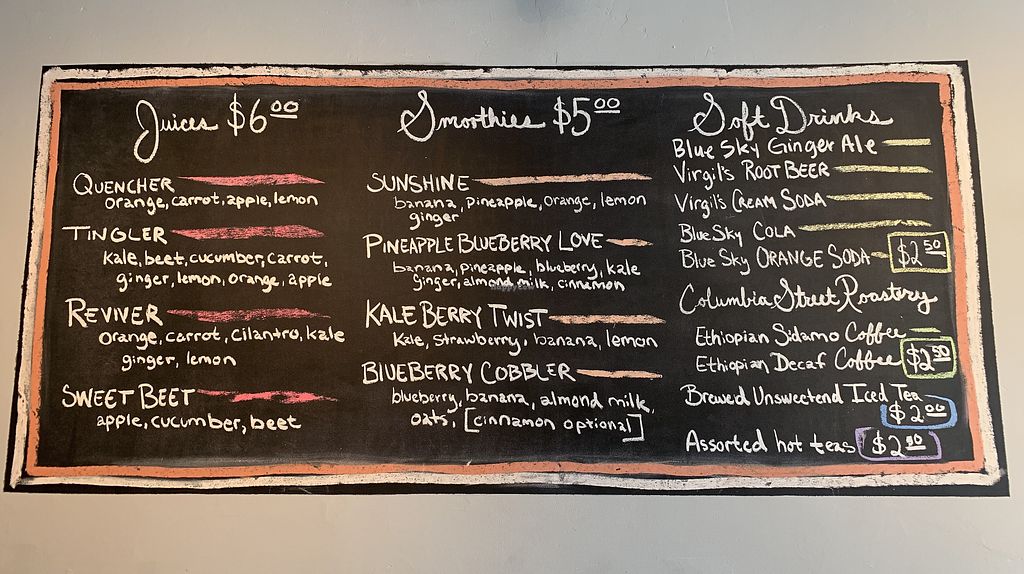 Juices $6.00
QUENCHER
orange, carrot, apple, lemon
TINGLER
kale, beet, cucumber, carrot,
ginger, lemon, orange, apple
REVIVER
orange, carrot, cilantro, kale
ginger, lemon
SWEET BEET
apple, cucumber, beet
Smoothies $5.00
SUNSHINE
banana, pineapple, orange, lemon
ginger
PINEAPPLE BLUEBERRY LOVE
banana, pineapple, blueberry, kale
ginger, almond milk, cinnamon
KALE BERRY TWIST
Kale, strawberry, banana, lemon
BLUEBERRY COBBLER
blueberry, banana, almond milk,
oats, [cinnamon optional]
Soft Drinks
Blue Sky Ginger Ale
Virgil's ROOT BEER
Virgil's CREAM SODA
Blue Sky COLA
Blue Sky ORANGE SODA $2.50
Columbia Street Roastery
Ethiopian Sidamo Coffee
Ethiopian Decaf Coffee $2.50
Brewed Unsweetend Iced Tea
$2.00
Assorted hot teas $2.00